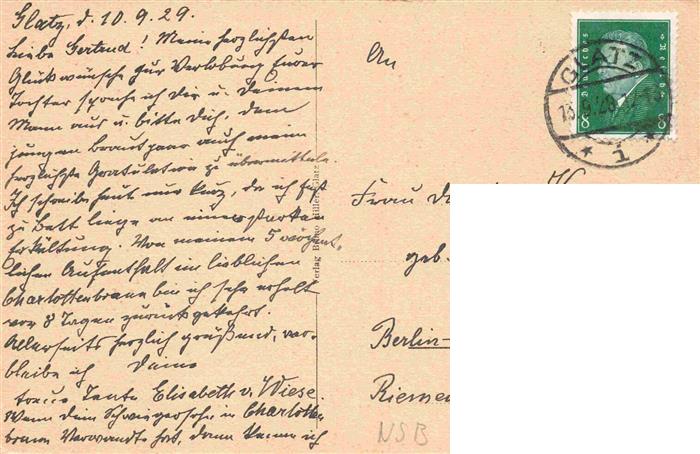 Glatz, d. 10.9.29.
Liebe Gertrud! Meine herzlichsten
Glückwünsche zur Verlobung Eurer
Tochter spreche ich dir u. Deinem
Mann aus u. bitte Dich, dem
jungen Brautpaar auch meine
herzlichste Gratulation zu übermitteln.
Ich schreibe heut nur kurz, da ich fest
zu Bett liege an einer starken
Erkältung. Von meinem 5 wöchent-
lichen Aufenthalt im lieblichen
Charlottenbrunn bin ich sehr erholt
vor 8 Tagen zurückgekehrt.
Allerseits herzlich grüßend, ver-
bleibe ich Deine
treue Tante Elisabeth v. Wiese.
Wenn dein Schwiegersohn in Charlotten
brunn Verwandte hat, dann kenne ich
Verlag Hiller, Glatz
An
Frau
geb.
Berlin-
NSB
Deutsches Reich
8 8
GLATZ
13.9.29
* 1 *